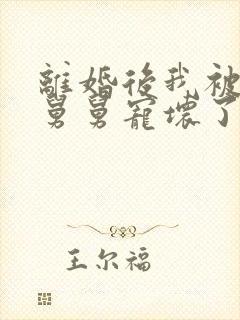 離婚後我被
舅舅寵壞了
王尔福